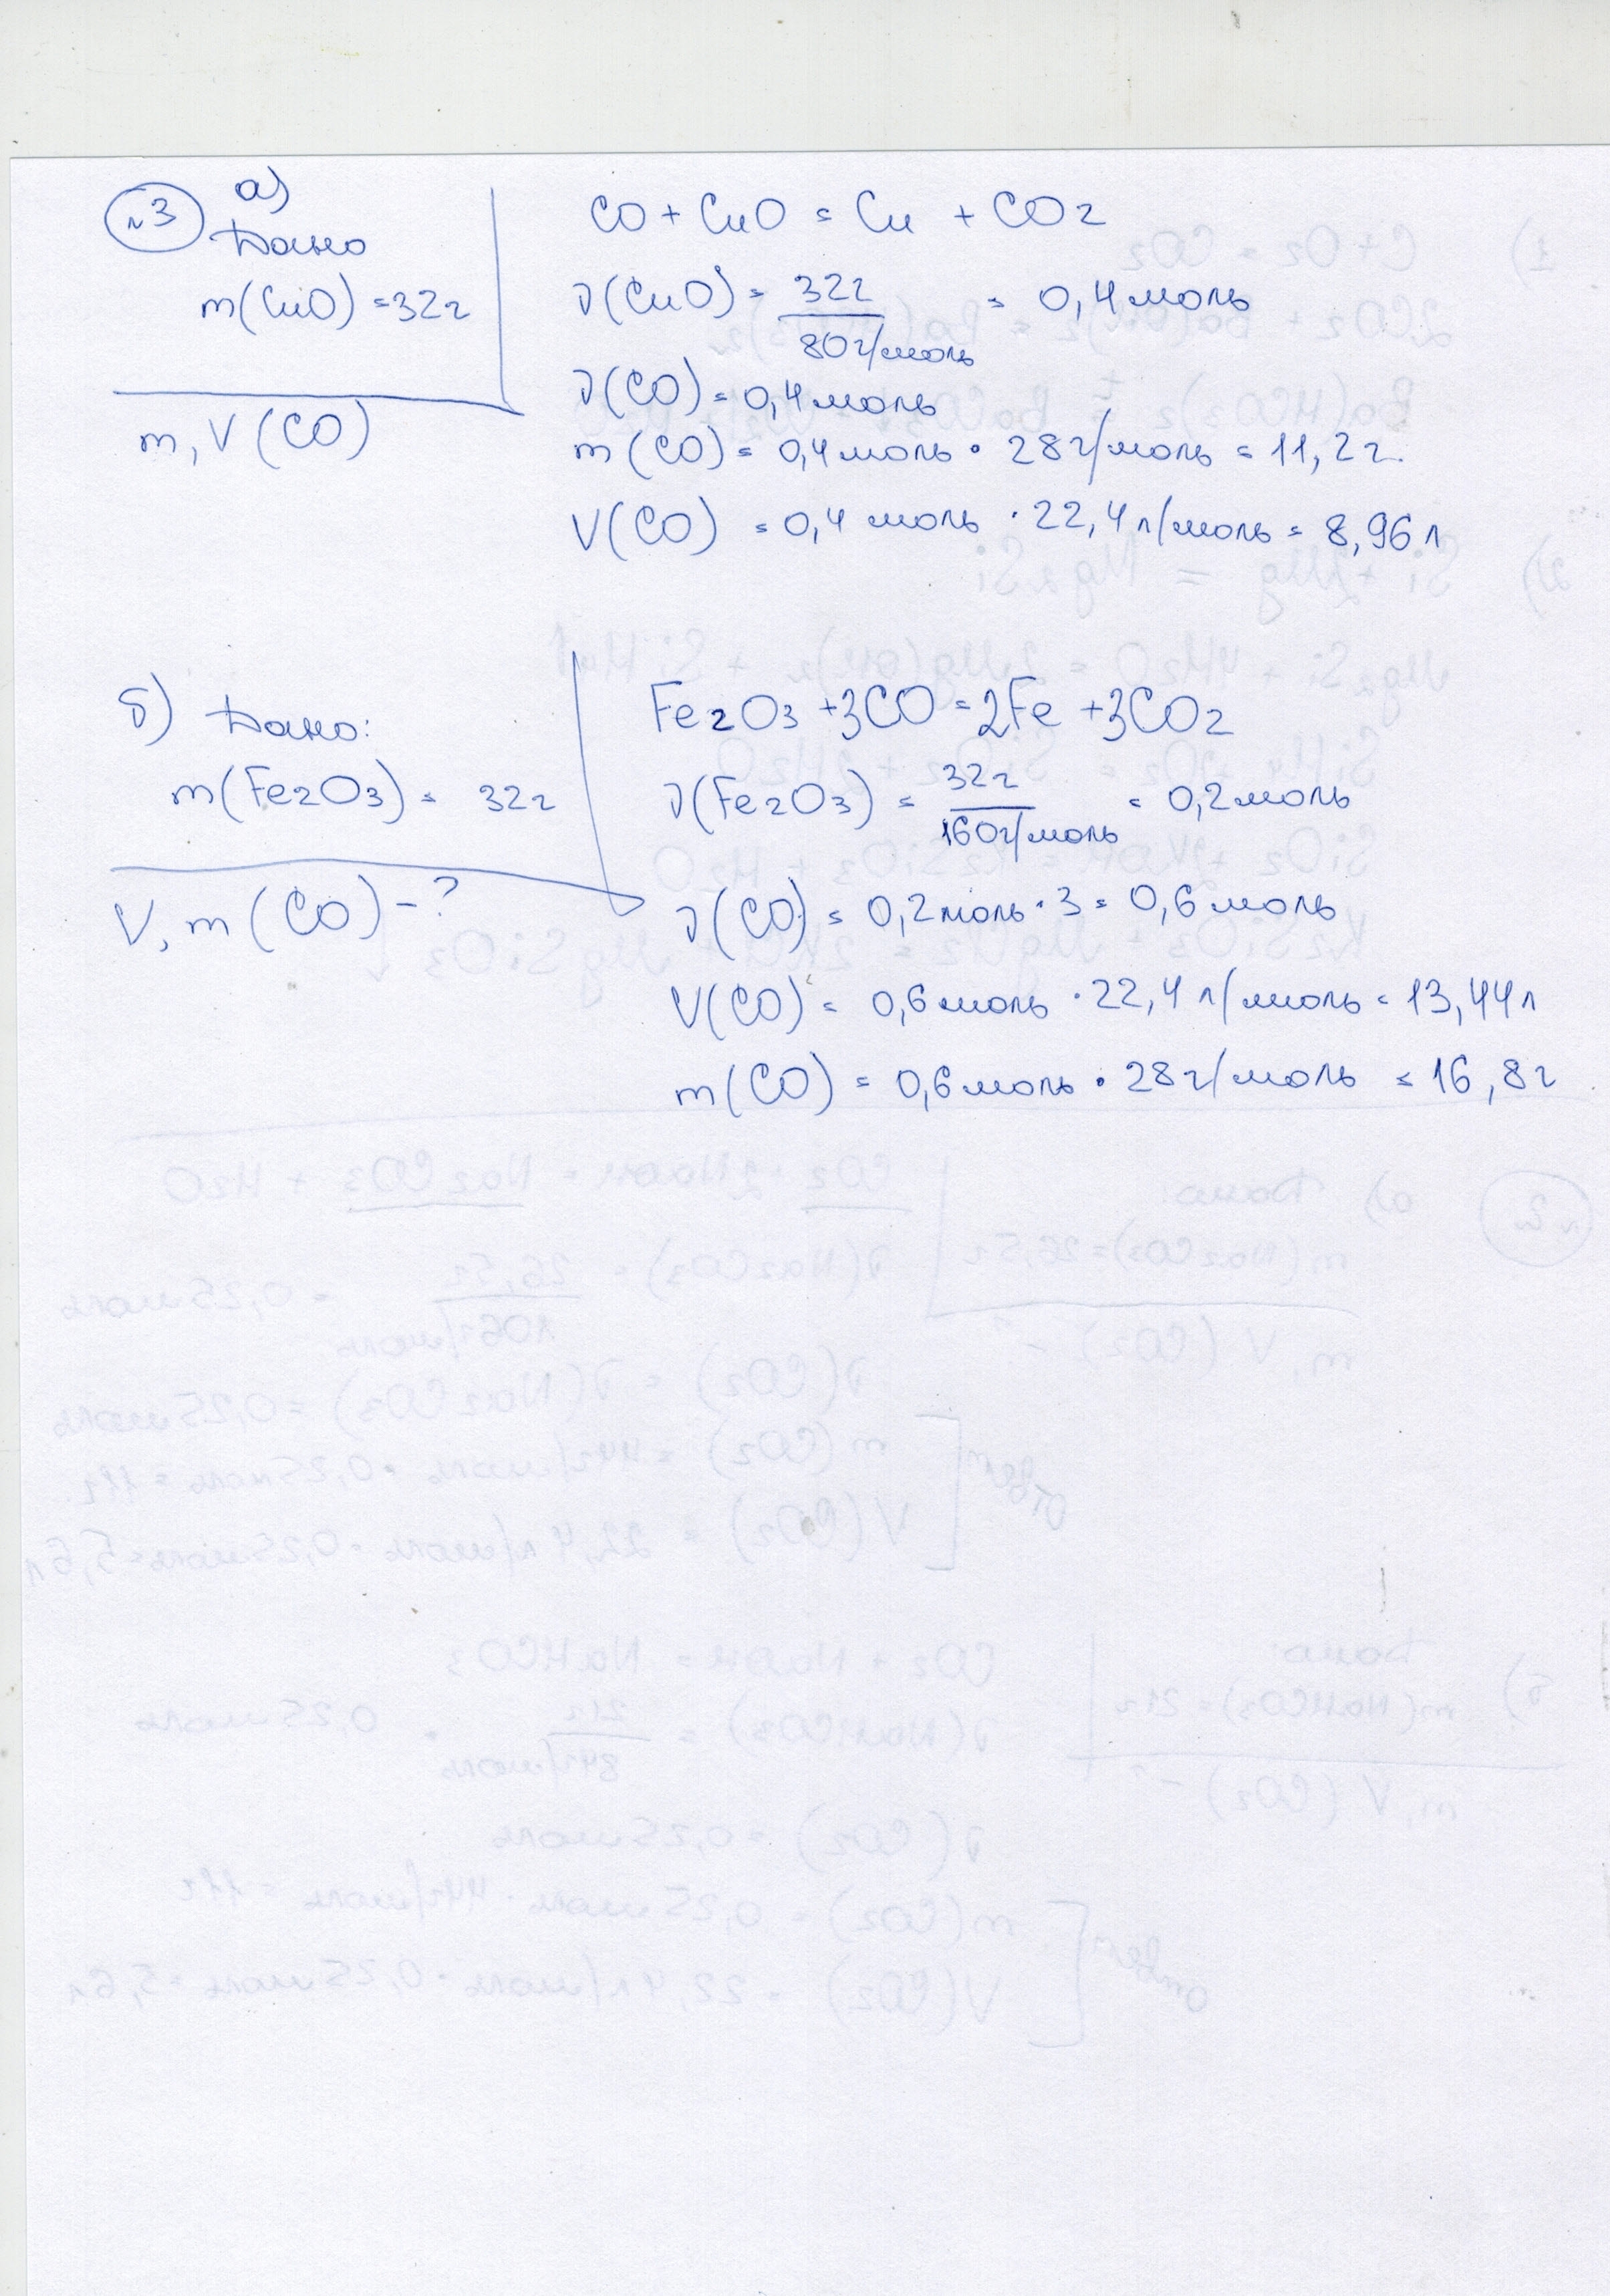 №3 а)
Дано
m(CuO) = 32г
m, V (CO)
CO + CuO = Cu + CO2
ν(CuO) = 32г / 80г/моль = 0,4 моль
ν(CO) = 0,4 моль
m(CO) = 0,4 моль · 28 г/моль = 11,2 г.
V(CO) = 0,4 моль · 22,4 л/моль = 8,96 л
б) Дано:
m(Fe2O3) = 32г
V, m (CO) - ?
Fe2O3 + 3CO = 2Fe + 3CO2
ν(Fe2O3) = 32г / 160г/моль = 0,2 моль
ν(CO) = 0,2 моль · 3 = 0,6 моль
V(CO) = 0,6 моль · 22,4 л/моль = 13,44 л
m(CO) = 0,6 моль · 28 г/моль = 16,8 г